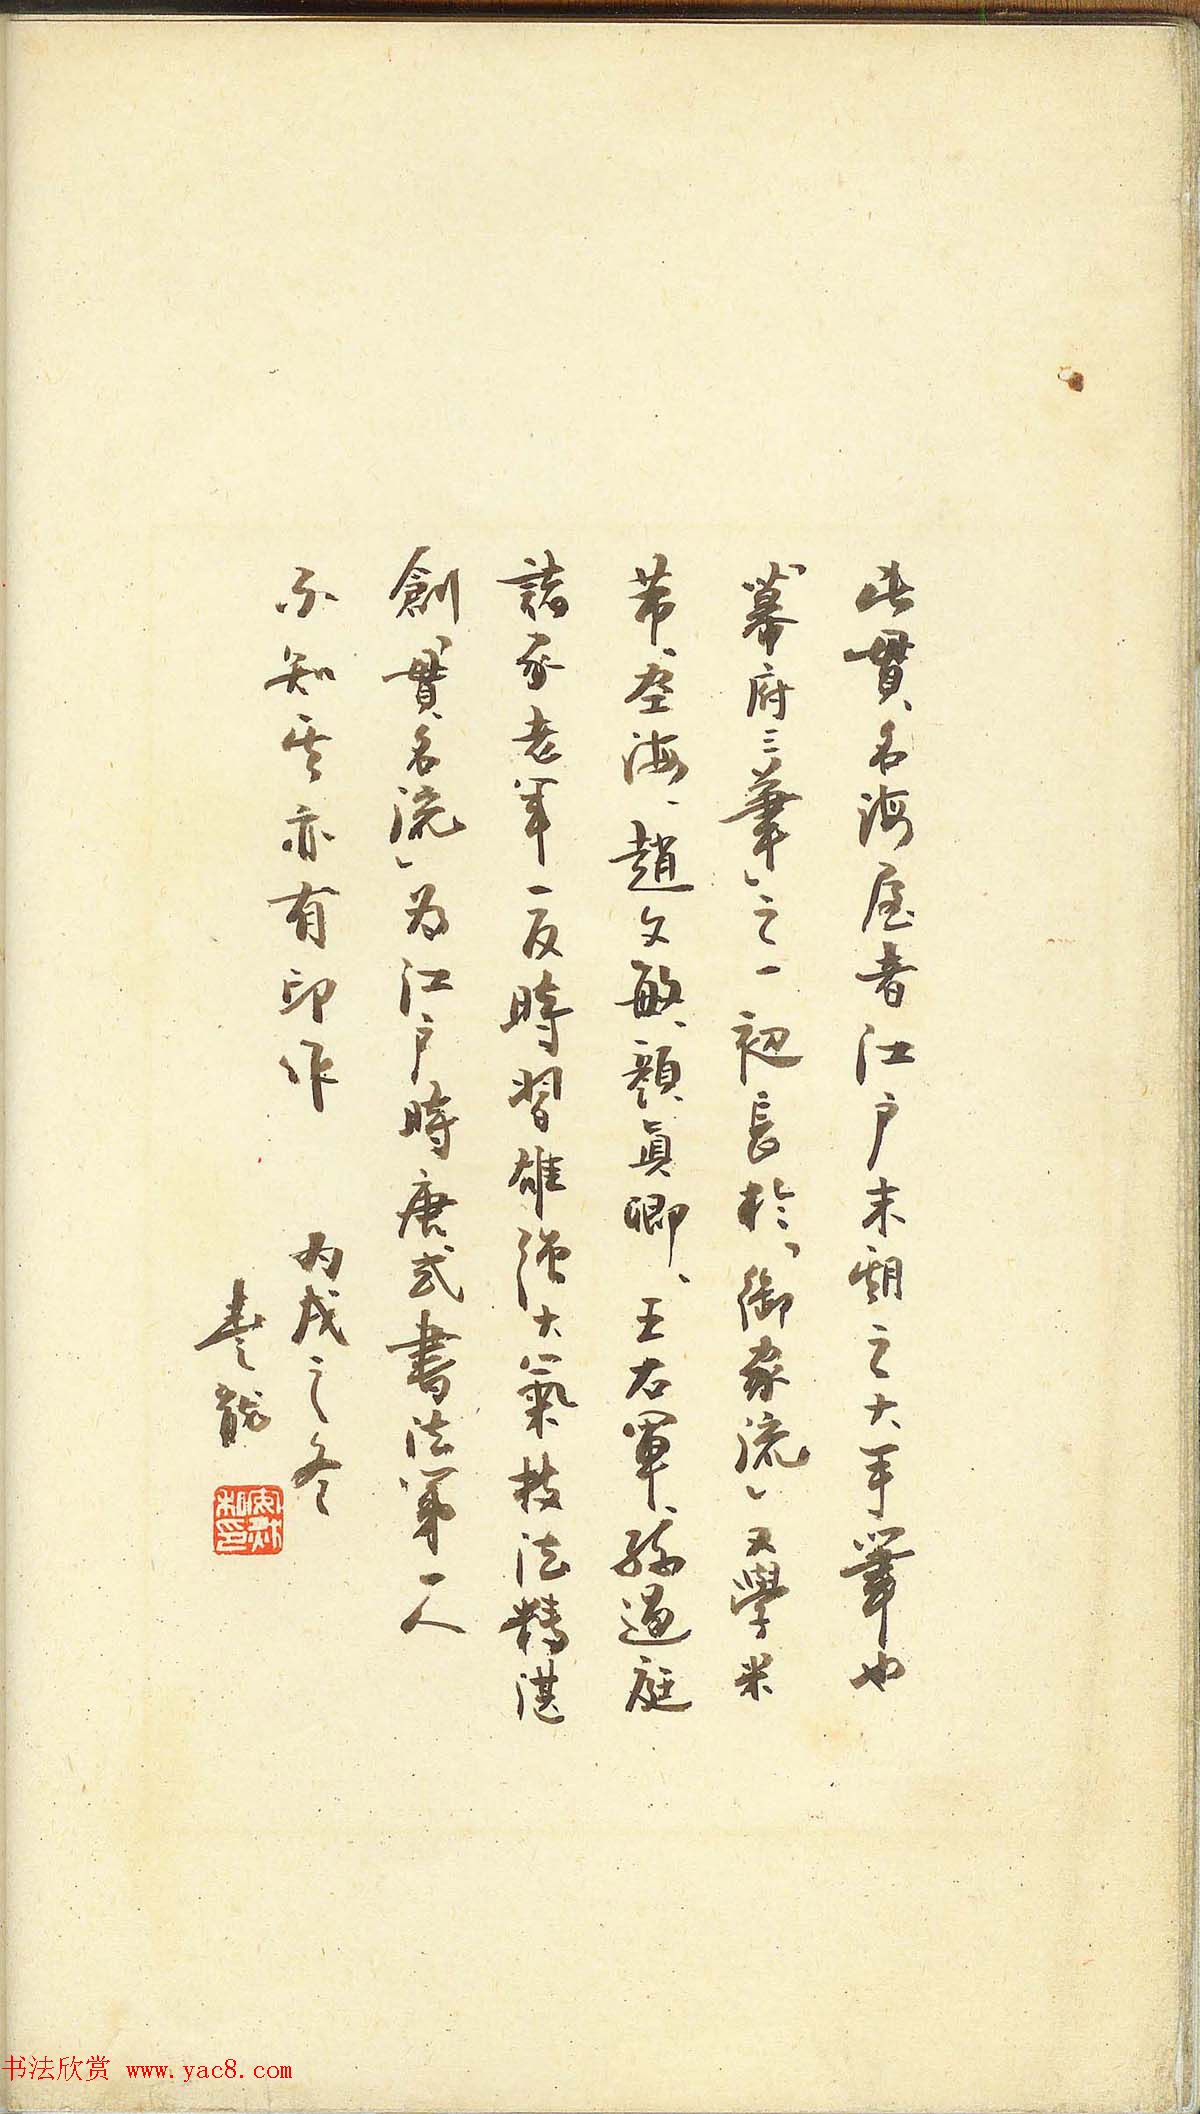 此貫名海屋者江户末期之大手筆也
「幕府三筆」之一初長於「御家流」又學米
芾、空海、趙文敏、顏真卿、王右軍、孫過庭
諸家老年一反時習雄强大氣技法精湛
創「貫名流」为江户時唐式書法第一人
不知其亦有印作
丙戌之冬
書法欣赏 www.yac8.com